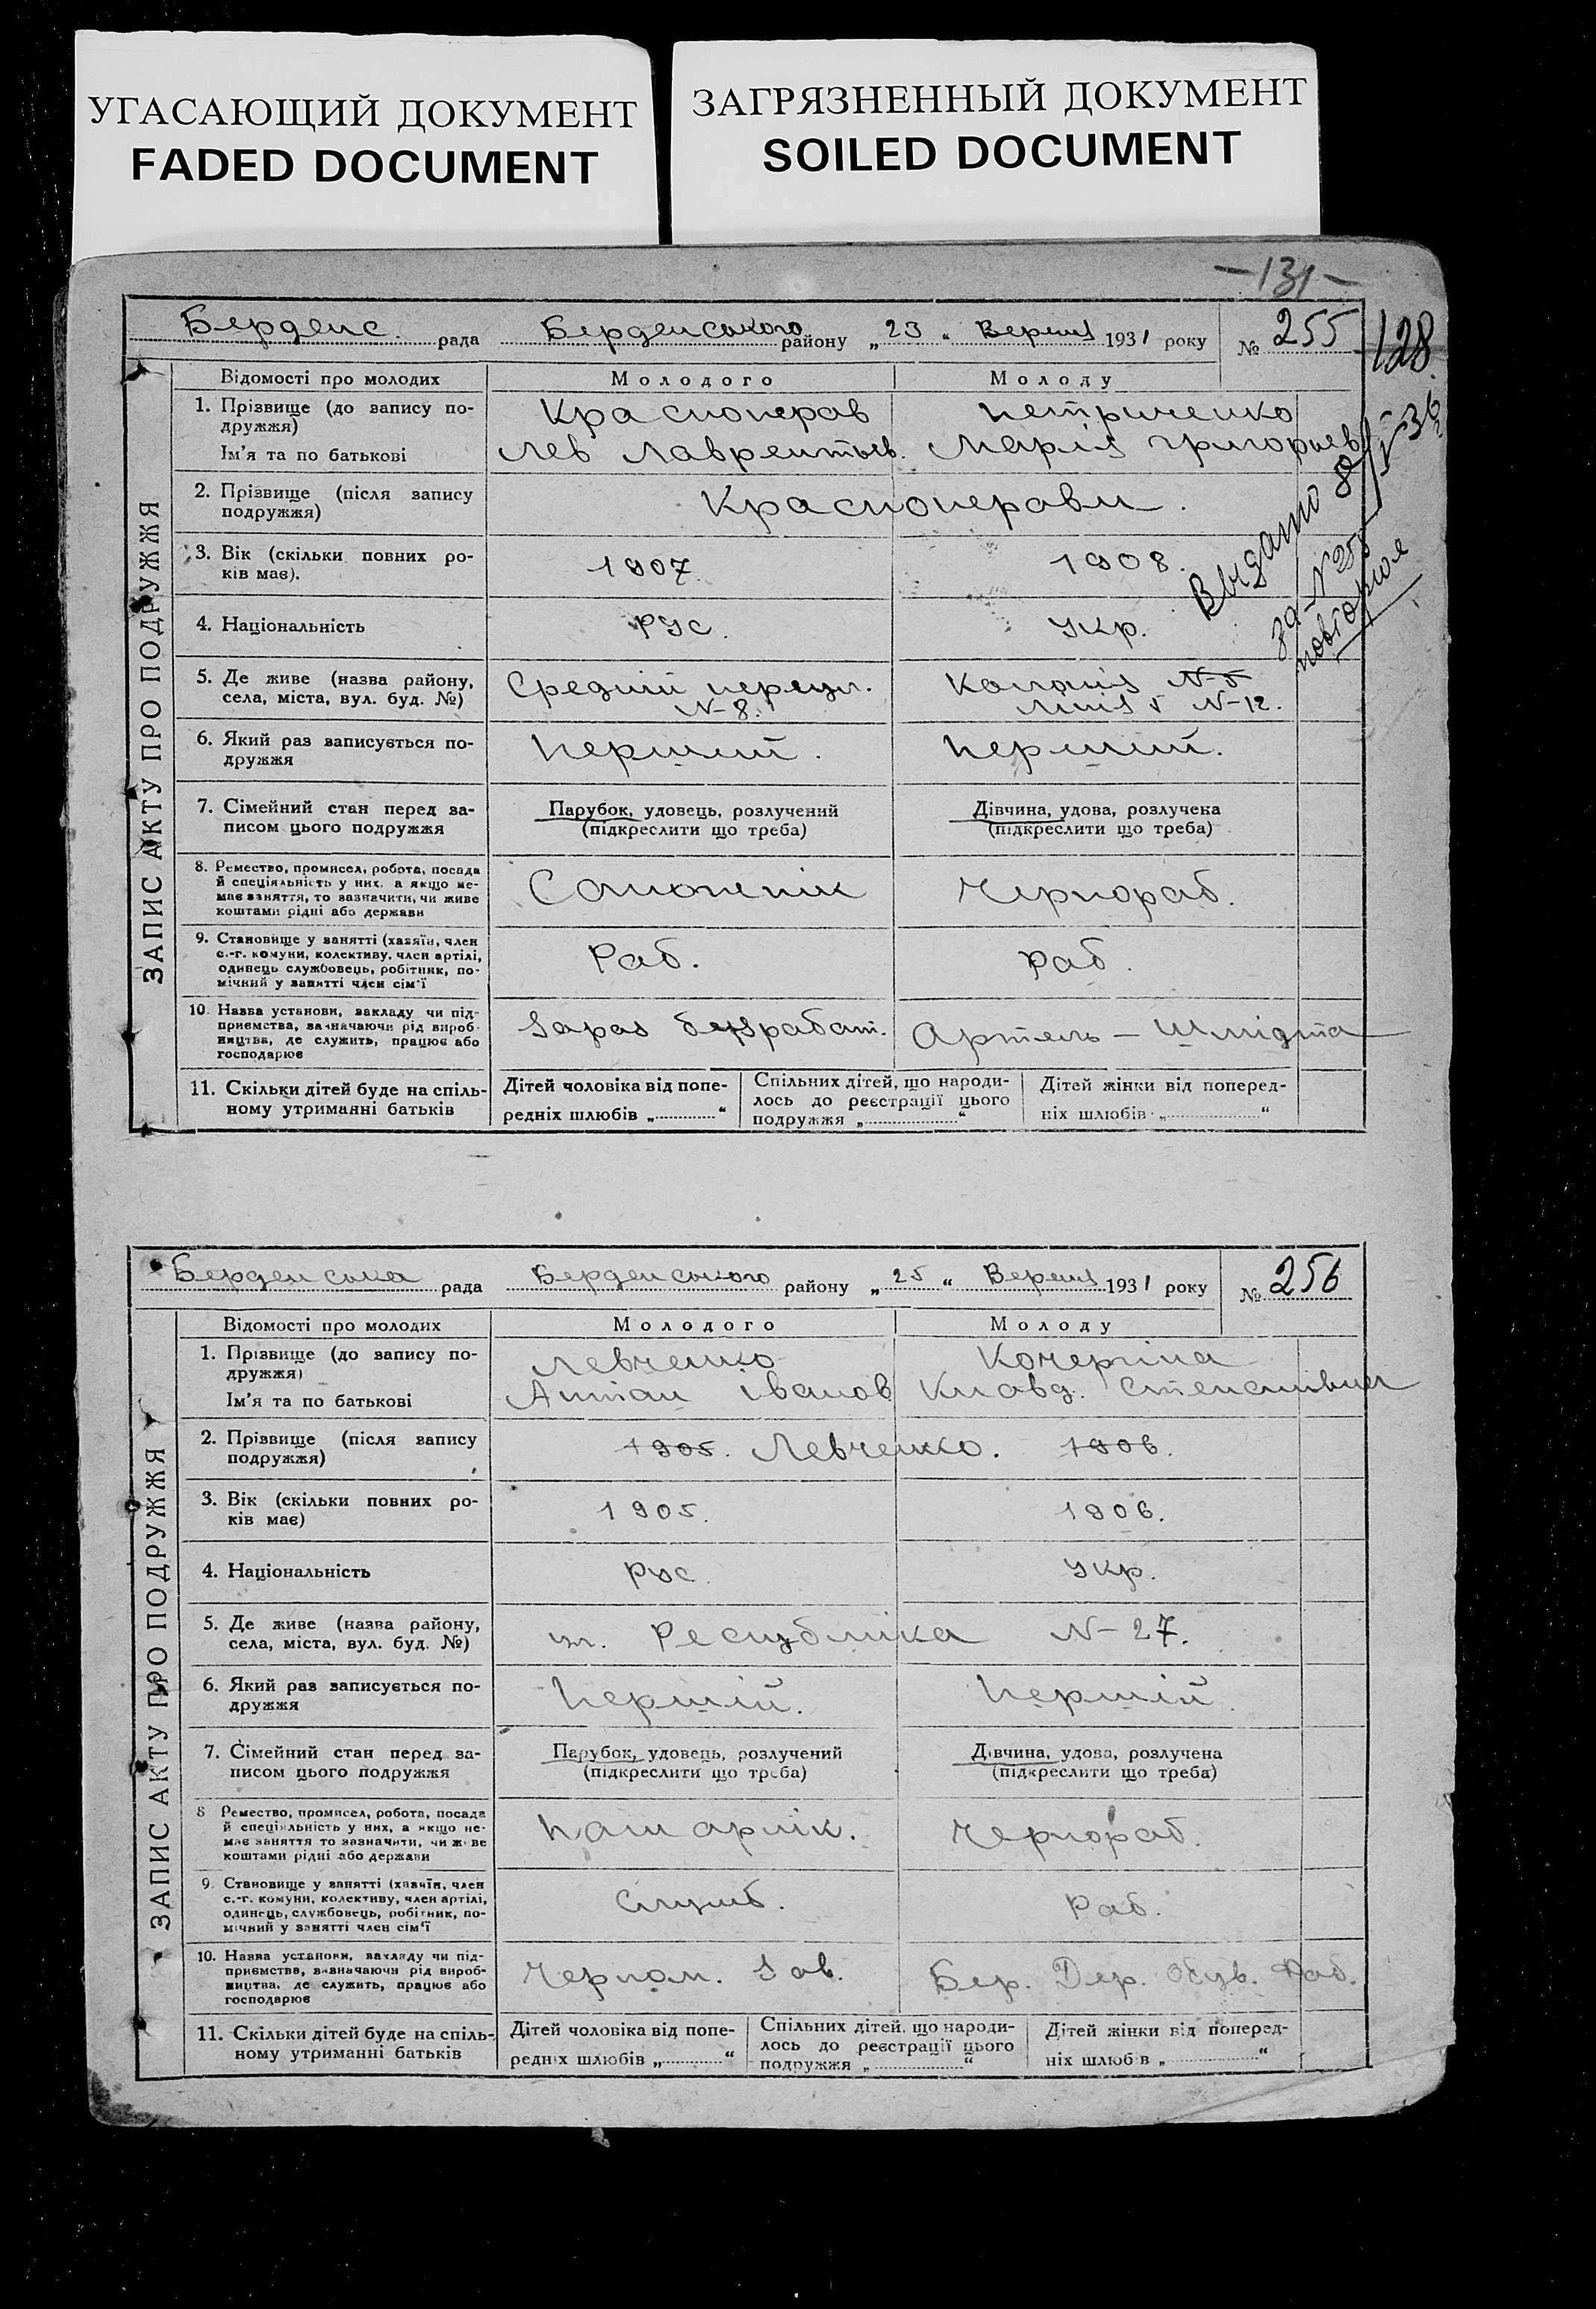 УГАСАЮЩИЙ ДОКУМЕНТ
FADED DOCUMENT
ЗАГРЯЗНЕННЫЙ ДОКУМЕНТ
SOILED DOCUMENT
-131-
128
Берденс. рада Берденського району „23“ Вересня 1931 року № 255
ЗАПИС АКТУ ПРО ПОДРУЖЖЯ
Відомості про молодих Молодого Молоду
1. Прізвище (до запису по-
дружжя) Красноперав Петриченко
Ім'я та по батькові Лев Лаврентьев. Марія Григорьев
2. Прізвище (після запису
подружжя) Красноперави.
3. Вік (скільки повних ро-
ків має). 1907. 1908.
4. Національність Рус. Укр.
5. Де живе (назва району, Средній переул. Колонія N-5
села, міста, вул. буд. №) N-8. Лінія 5 N-12.
6. Який раз записується по-
дружжя Перший. Перший.
7. Сімейний стан перед за- Парубок, удовець, розлучений Дівчина, удова, розлучена
писом цього подружжя (підкреслити що треба) (підкреслити що треба)
8. Ремество, промисел, робота, посада
й спеціяльність у них, а якщо не-
має заняття, то зазначити, чи живе
коштами рідні або держави Чернораб.
9. Становище у занятті (хазяїн, член
с.-г. комуни, колективу, член артілі,
одинець службовець, робітник, по-
мічний у занятті член сім'ї Раб. Раб.
10. Назва установи, закладу чи під-
приємства, зазначаючи рід вироб-
ництва, де служить, працює або
господарює Зараз безработ. Артель - Шмідта
11. Скільки дітей буде на спіль-
ному утриманні батьків
Дітей чоловіка від попе-
редніх шлюбів „ “
Спільних дітей, що народи-
лось до реєстрації цього
подружжя „ “
Дітей жінки від поперед-
ніх шлюбів „ “
Выдано
за N 255
повторное
Берденська рада Берденського району „25“ Вересня 1931 року № 256
ЗАПИС АКТУ ПРО ПОДРУЖЖЯ
Відомості про молодих Молодого Молоду
1. Прізвище (до запису по-
дружжя) Левченко Кочергіна
Ім'я та по батькові Антан Іванов Клавд. Степановна
2. Прізвище (після запису
подружжя) 1905. Левченко. 1906.
3. Вік (скільки повних ро-
ків має) 1905. 1906.
4. Національність Рус. Укр.
5. Де живе (назва району,
села, міста, вул. буд. №) ул. Республіка N-27.
6. Який раз записується по-
дружжя Першій. Першій.
7. Сімейний стан перед за- Парубок, удовець, розлучений Дівчина, удова, розлучена
писом цього подружжя (підкреслити що треба) (підкреслити що треба)
8 Ремество, промисел, робота, посада
й спеціяльність у них, а якщо не-
має заняття то зазначити, чи живе
коштами рідні або держави Чернораб.
9. Становище у занятті (хазяїн, член
с.-г. комуни, колективу, член артілі,
одинець, службовець, робітник, по-
мічний у занятті член сім'ї Служб. Раб.
10. Назва установи, закладу чи під-
приємства, зазначаючи рід вироб-
ництва, де служить, працює або
господарює Зав. Бер. Дер. Раб.
11. Скільки дітей буде на спіль-
ному утриманні батьків
Дітей чоловіка від попе-
редніх шлюбів „ “
Спільних дітей, що народи-
лось до реєстрації цього
подружжя „ “
Дітей жінки від поперед-
ніх шлюбів „ “